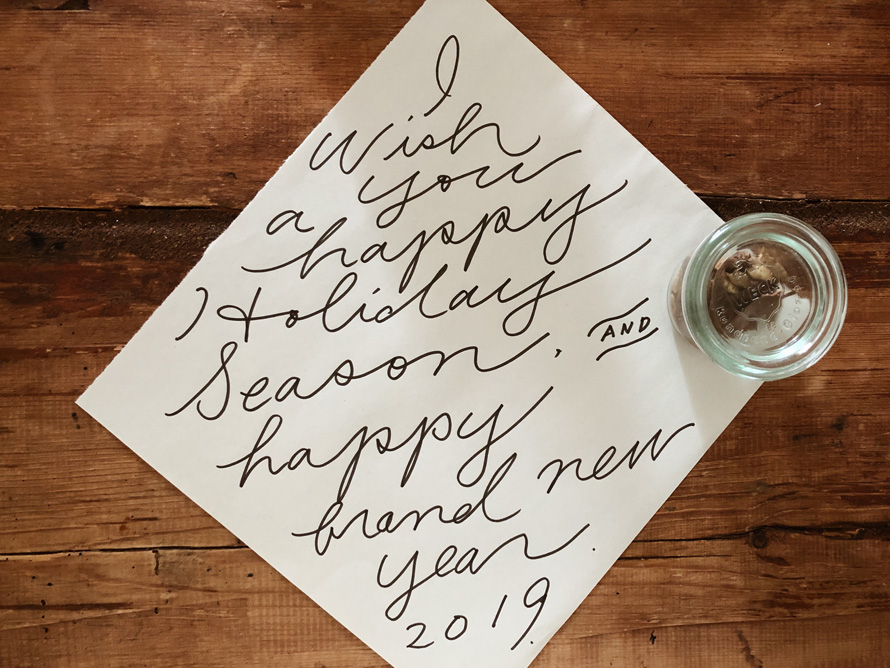 I
wish
you
a
happy
Holiday
Season, AND
happy
brand new
year.
2019.
WECK